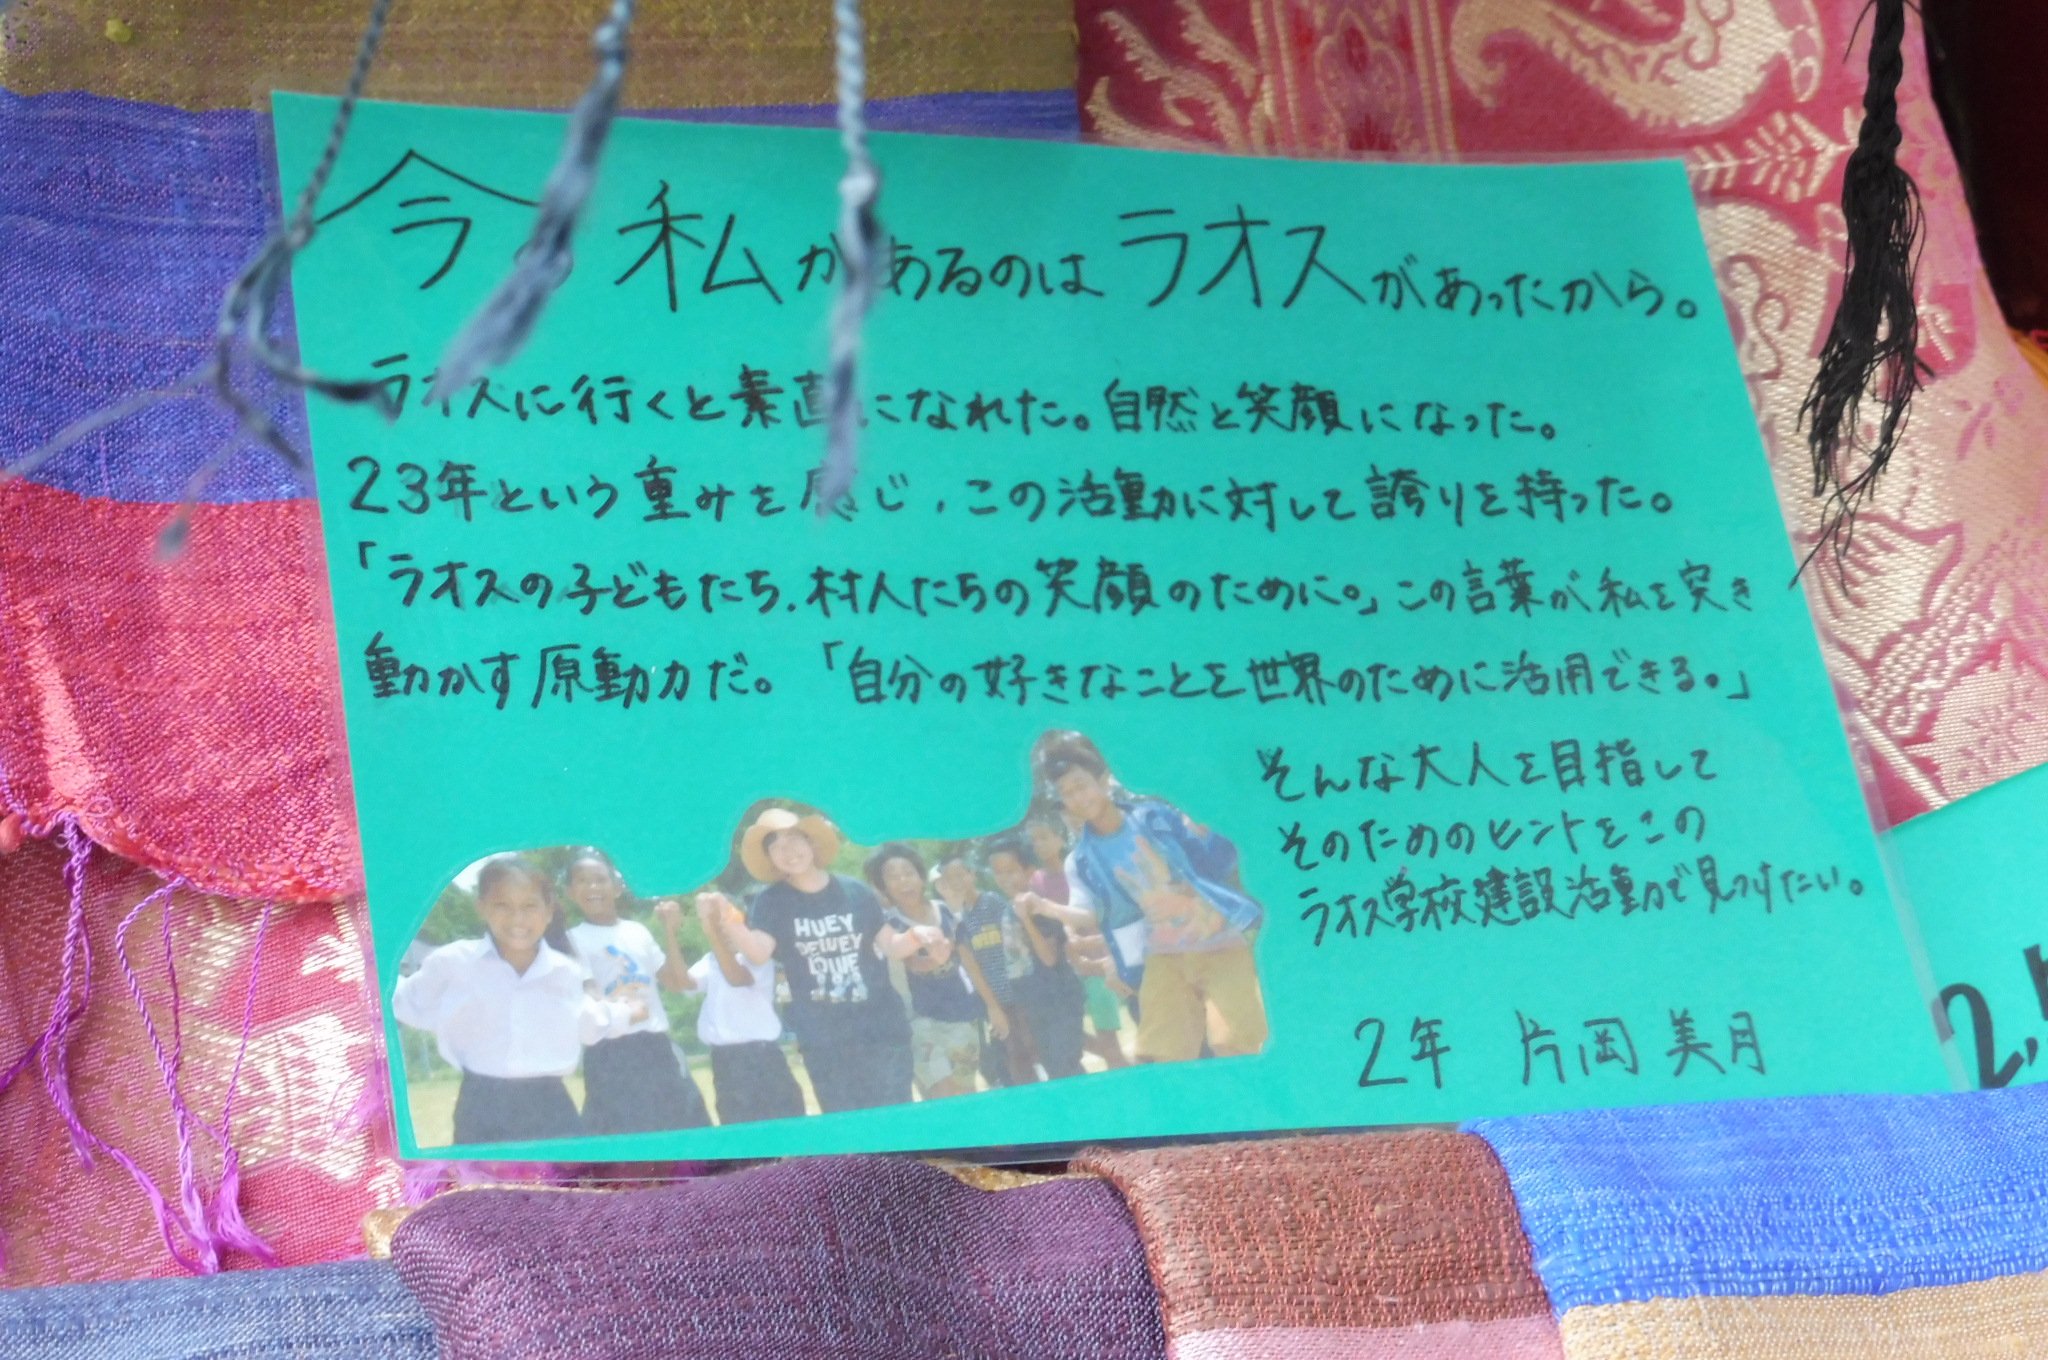 今、私があるのはラオスがあったから。
ラオスに行くと素直になれた。自然と笑顔になった。
23年という重みを感じ、この活動に対して誇りを持った。
「ラオスの子どもたち、村人たちの笑顔のために。」この言葉が私を突き
動かす原動力だ。「自分の好きなことを世界のために活用できる。」
そんな大人を目指して
そのためのヒントをこの
ラオス学校建設活動で見つけたい。
HUEY
DEWEY
LOUIE
2年 片岡 美月